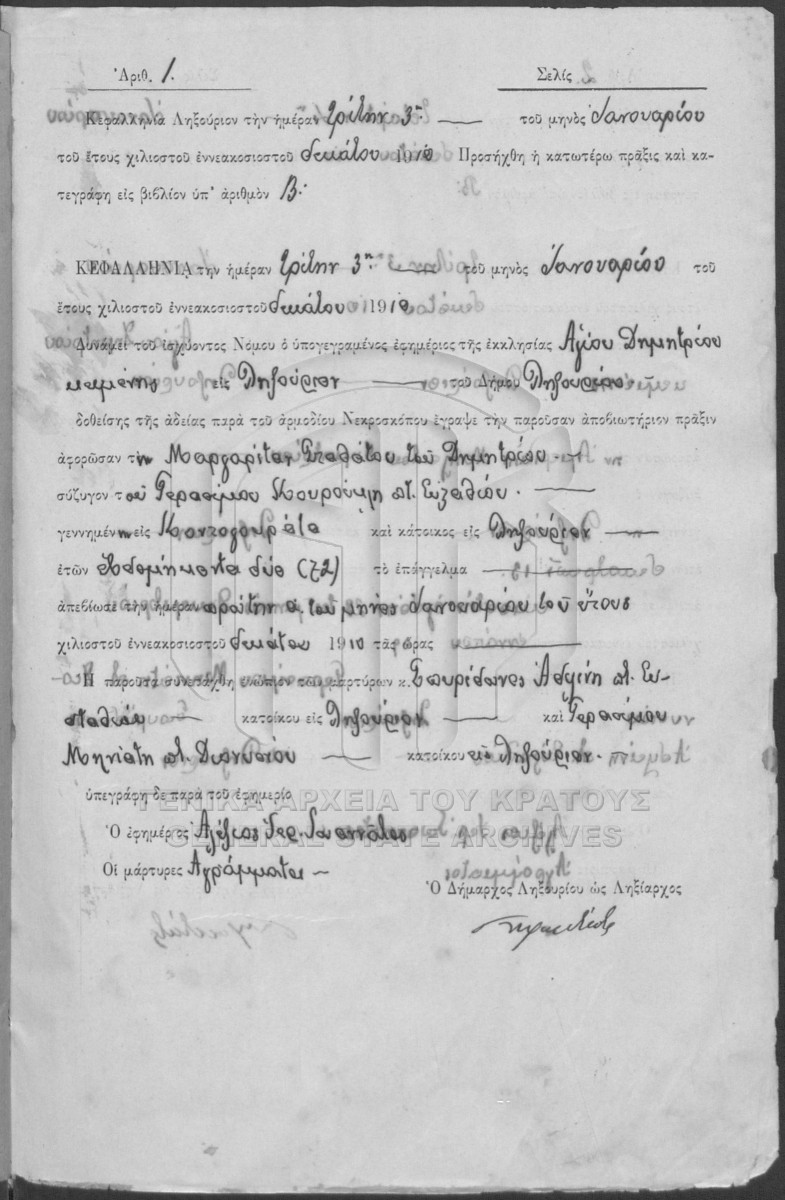 Ἀριθ. 1. Σελίς
Κεφαλληνία Ληξούριον τὴν ἡμέραν τρίτην 3ην τοῦ μηνὸς Ἰανουαρίου
τοῦ ἔτους χιλιοστοῦ ἐννεακοσιοστοῦ δεκάτου 1910 Προσήχθη ἡ κατωτέρω πρᾶξις καὶ κα-
τεγράφη εἰς βιβλίον ὑπ' ἀριθμὸν Β.
ΚΕΦΑΛΛΗΝΙΑ τὴν ἡμέραν τρίτην 3ην τοῦ μηνὸς Ἰανουαρίου τοῦ
ἔτους χιλιοστοῦ ἐννεακοσιοστοῦ δεκάτου 1910
Δυνάμει τοῦ ἰσχύοντος Νόμου ὁ ὑπογεγραμένος ἐφημέριος τῆς ἐκκλησίας Ἁγίου Δημητρίου
εἰς Ληξούριον τοῦ Δήμου Ληξουρίου
δοθείσης τῆς ἀδείας παρὰ τοῦ ἁρμοδίου Νεκροσκόπου ἔγραψε τὴν παροῦσαν ἀποβιωτήριον πρᾶξιν
ἀφορῶσαν τὴν Μαργαρίταν Σταθάτου τοῦ Δημητρίου.
σύζυγον τοῦ Γερασίμου Κουρούκλη ποτ. Εὐσταθίου.
γεννημένην εἰς Κοντογουράτα καὶ κάτοικος εἰς Ληξούριον
ἐτῶν ἑβδομήκοντα δύο (72) τὸ ἐπάγγελμα
ἀπεβίωσε τὴν ἡμέραν πρώτην α. τοῦ μηνὸς Ἰανουαρίου τοῦ ἔτους
χιλιοστοῦ ἐννεακοσιοστοῦ δεκάτου 1910 τὰς ὥρας
Ἡ παροῦσα συνετάχθη ἐνώπιον τῶν μαρτύρων κ. Σπυρίδωνος ποτ. Εὐ-
σταθίου κατοίκου εἰς Ληξούριον καὶ Γερασίμου
Μηνιάτη ποτ. Διονυσίου κατοίκου εἰς Ληξούριον.
ὑπεγράφη δὲ παρὰ τοῦ ἐφημερίο
ΓΕΝΙΚΑ ΑΡΧΕΙΑ ΤΟΥ ΚΡΑΤΟΥΣ
Ὁ ἐφημέριος Ἀλέξιος Γερ. Ἰωαννᾶτος
GENERAL STATE ARCHIVES
Οἱ μάρτυρες Ἀγράμματοι
Ὁ Δήμαρχος Ληξουρίου ὡς Ληξίαρχος